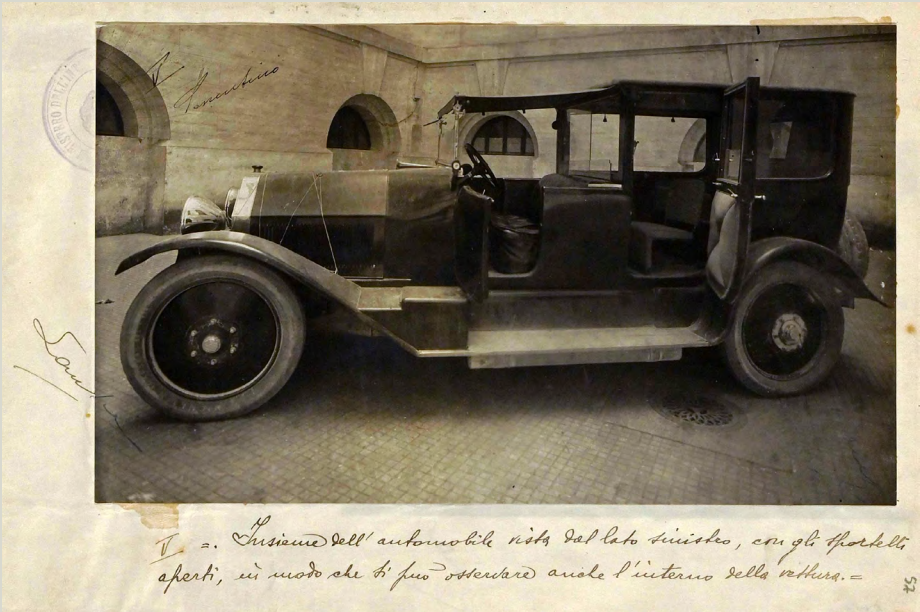 V
V =. Insieme dell' automobile vista dal lato sinistro, con gli sportelli
aperti, in modo che si può osservare anche l'interno della vettura.=
57